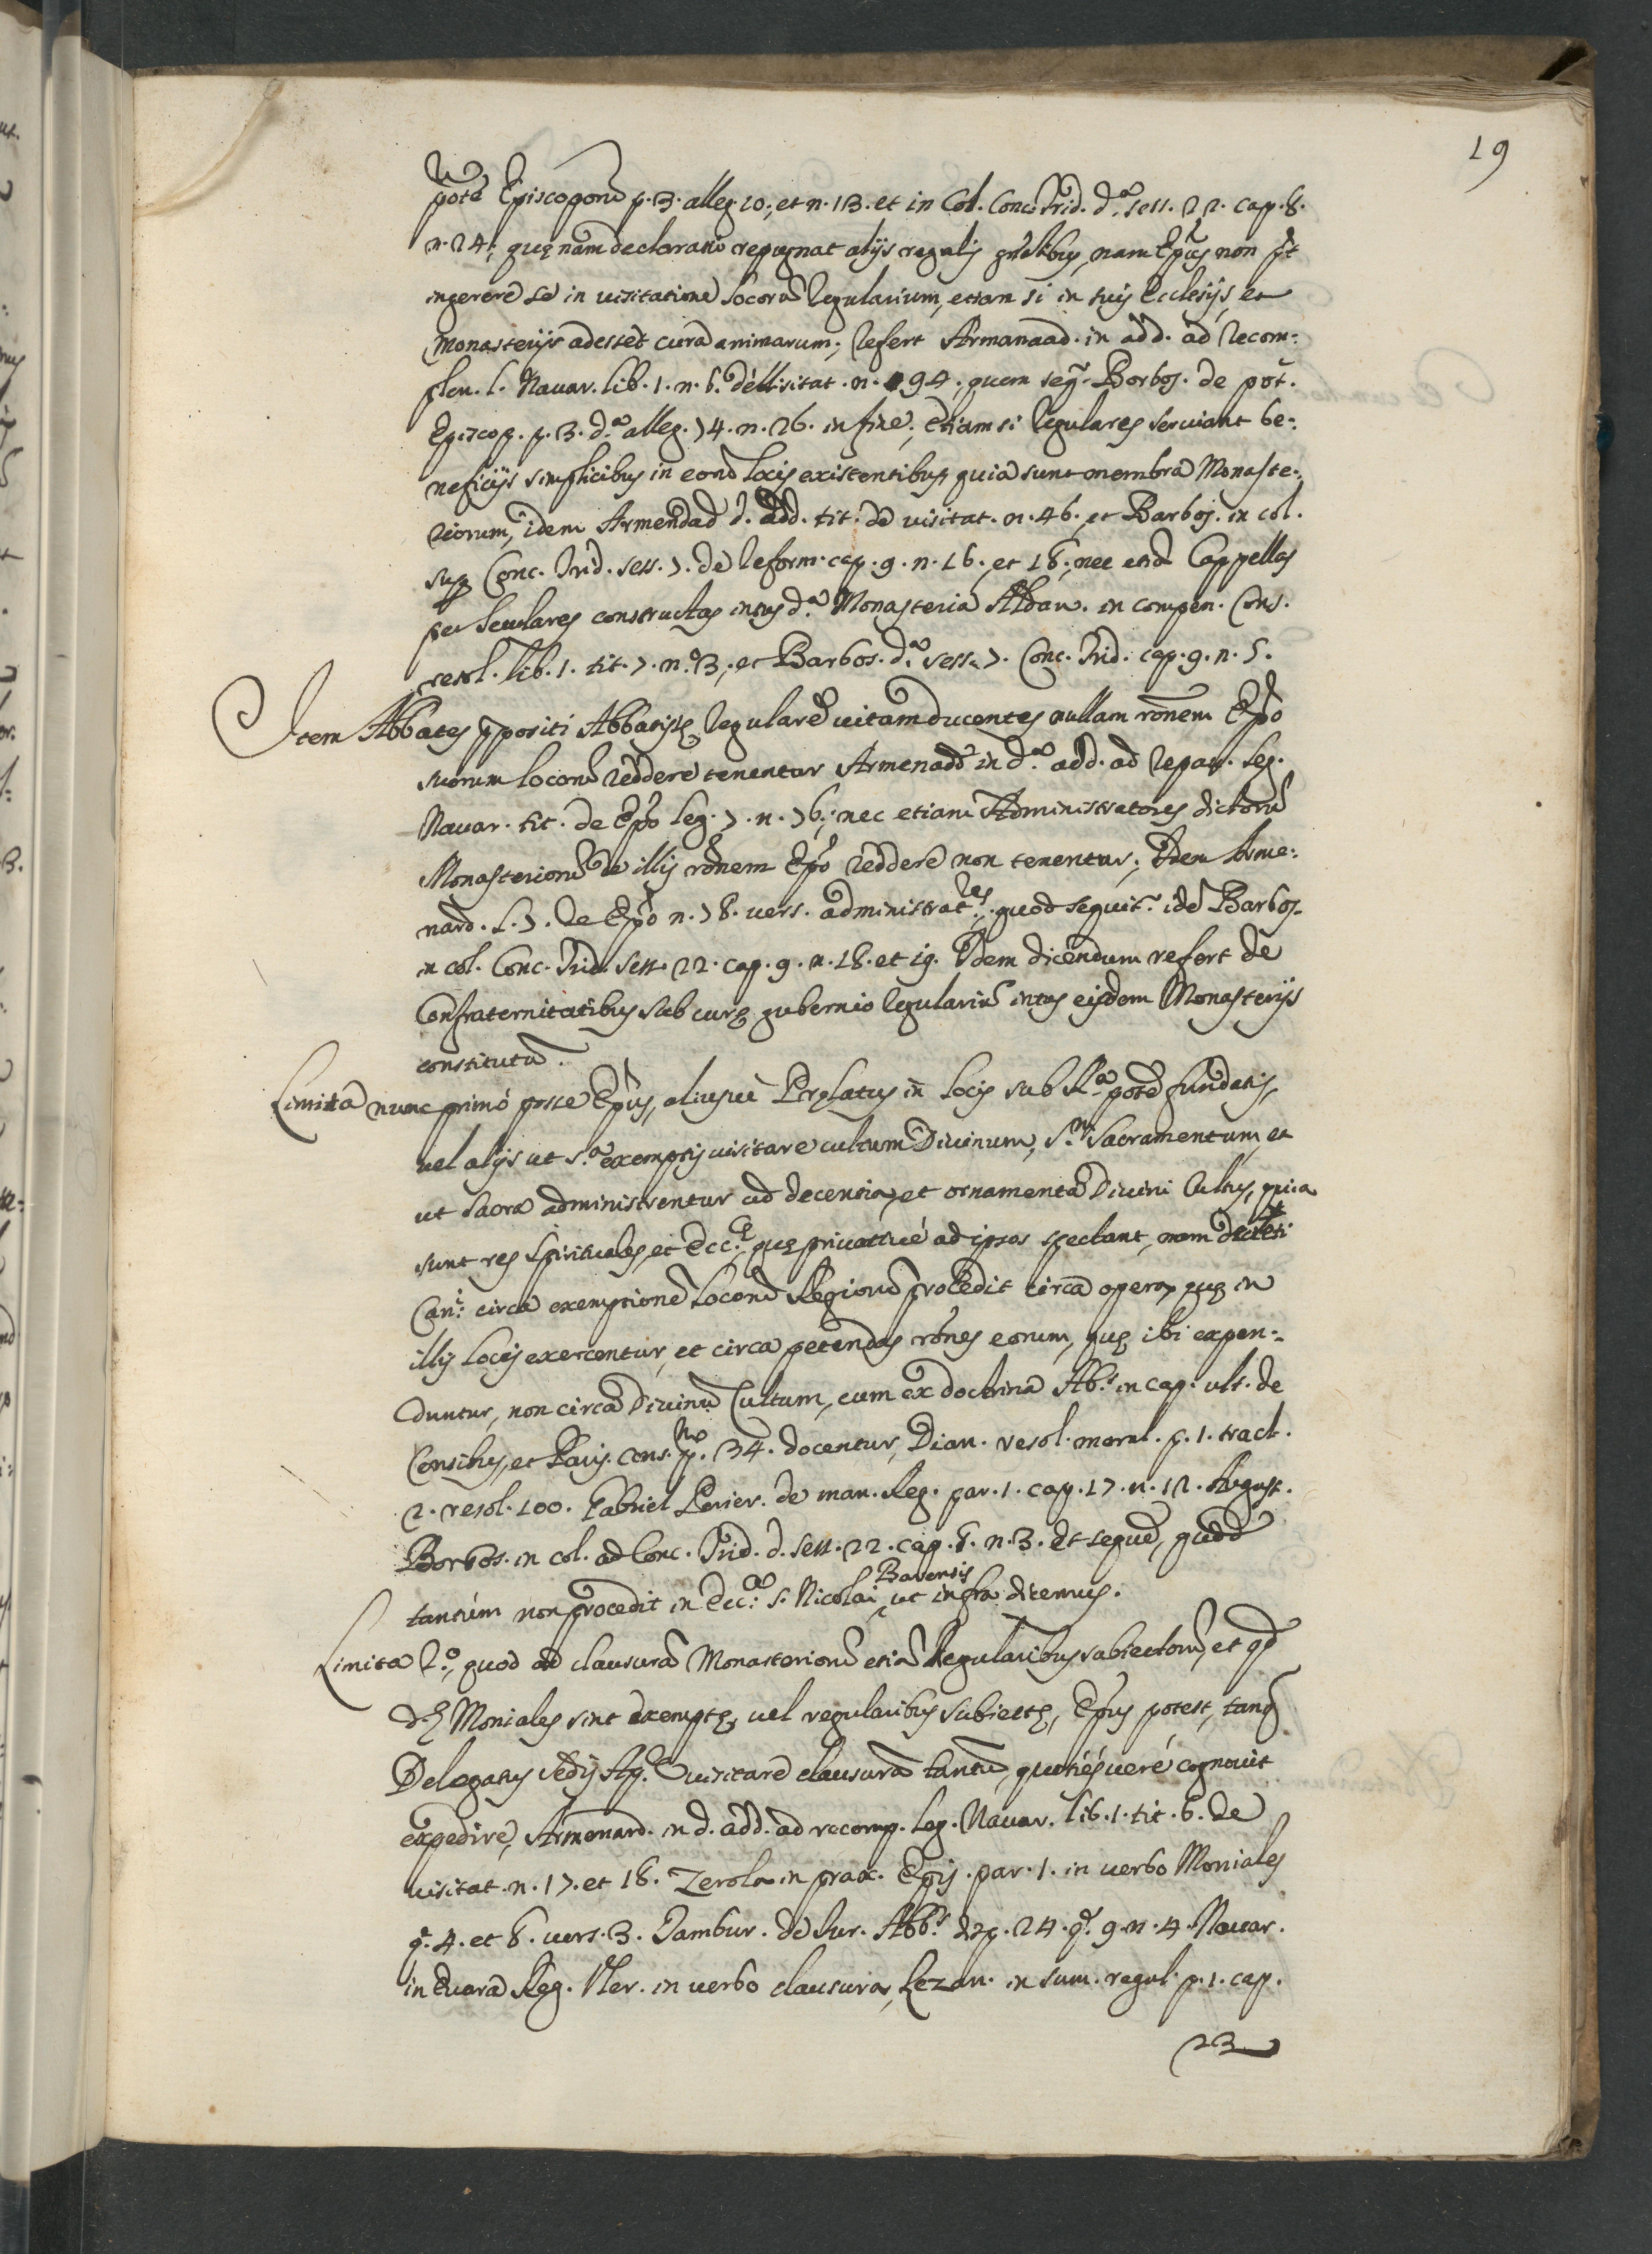 19
potẽ Episcoporũ p. 3. alleg. 10., et n. 13. et in Col. Conc. Trid. d.ª sess. 22. cap. 8.
n. 24; quę nam declaratio repugnat alijs regulis gñlibus, nam Epũs non pt
ingerere se in visitatione locorũ Regularium, etiam si in suis Ecclesijs, et
Monasterijs adesset cura animarum; refert Armanaad. in add. ad recom:
plen. l. Navar. lib. 1. n. 6. de visitat. n. 94. quem seqr. Barbos. de pot.
Episcop. p. 3. d.ª alleg. 74. n. 26. in fine; Etiam si Regulares serviant be:
neficijs simplicibus in eorũd locis existentibus, quia sunt membra Monaste:
riorum, idem Armendad d. add. tit. de visitat. n. 46. et Barbos. in col.
sup. Conc. Trid. sess. 7. de Reform. cap. 9. n. 16., et 18; nec etiã Cappellas
per seculares constructas intus d.ª Monasteria Aldan. in compen. Cons.
resol. lib. 1. tit. 7. n.º 3, et Barbos. d.ª sess. 7. Conc. Trid. cap. 9. n. 5.
Item Abbates ppositi Abbatissę Regularẽ vitam ducentes nullam rõnem Epõ
suorum locorũ reddere tenentur Armenadd in d.ª add. ad repan. leg.
Navar. tit. de Epõ leg. 7. n. 76; nec etiam Administratores dictorũ
Monasteriorũ de illis rõnem Epõ reddere non tenentur; Idem Arme:
nard. l. 7. de Epõ n. 78. vers. administrat.res, quod sequit.r idẽ Barbos.
in col. Conc. Trid. sess. 22. cap. 9. n. 18. et 19. Idem dicendum refert de
Confraternitatibus sub curę gubernio Regulariũ intus eisdem Monasterijs
constitutã.
Limita nunc primò posse Epũs, aliusvè Pręlatus in locis sub R.ª potẽ fundatis,
vel alijs ut s.ª exemptis visitare cultum Divinum, S.m Sacramentum, et
ut sacra administrentur ad decentia, et ornamenta Divini Cultus, quia
sunt res spirituales, et Ecc.ę, quę privativè ad ipsos spectant, nam decisi
Can: circa exemptionẽ locorũ Regiorũ procedit circa opera, quę in
illis locis exercentur, et circa petendas rõnes eorum, quę ibi expen:
duntur, non circa Divinũ Cultum, cum ex doctrina Ab.s in cap. ult. de
Consibus, et Paris. cons. p.mo 34. docentur, Dian. resol. moral. p. 1. tract.
2. resol. 100. Gabriel Perier. de man. Reg. par. 1. cap. 17. n. 12. August.
Barbos. in col. ad Conc. Trid. d. sess. 22. cap. 8. n. 3. et sequẽ, quod
tantùm non procedit in Ecc.ª S. Nicolai Barensis, ut infra dicemus.
Limita 2.º, quod ad clausurã Monasteriorũ etiã Regularibus subiectorũ, et qd
d.ę Moniales sint exemptę, vel regularibus subiectę, Epũs potest, tanq
Delegatus Sedis Ap.cę visitare clausurã tantũ, quotiésverè cognovit
expedire, Armenard. in d. add. ad recomp. leg. Navar. lib. 1. tit. 6. de
visitat. n. 17. et 18. Zerola in prax. Epis. par. 1. in verbo Moniales
q. 4. et 8. vers. 3. Tambur. de Iur. Abb.s disp. 24. q. 9. n. 4. Navar.
in Euara Reg. Ver. in verbo clausura, Lezan. in sum. regul. p. 1. cap.
23